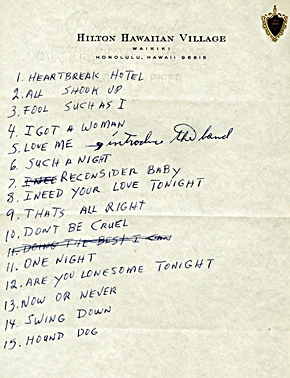 HILTON HAWAIIAN VILLAGE
WAIKIKI
HONOLULU, HAWAII 96815
1. HEARTBREAK HOTEL
2. ALL SHOOK UP
3. FOOL SUCH AS I
4. I GOT A WOMAN
5. LOVE ME → introduce the band
6. SUCH A NIGHT
7. I NEE RECONSIDER BABY
8. I NEED YOUR LOVE TONIGHT
9. THATS ALL RIGHT
10. DONT BE CRUEL
11. DOING THE BEST I CAN
11. ONE NIGHT
12. ARE YOU LONESOME TONIGHT
13. NOW OR NEVER
14. SWING DOWN
15. HOUND DOG